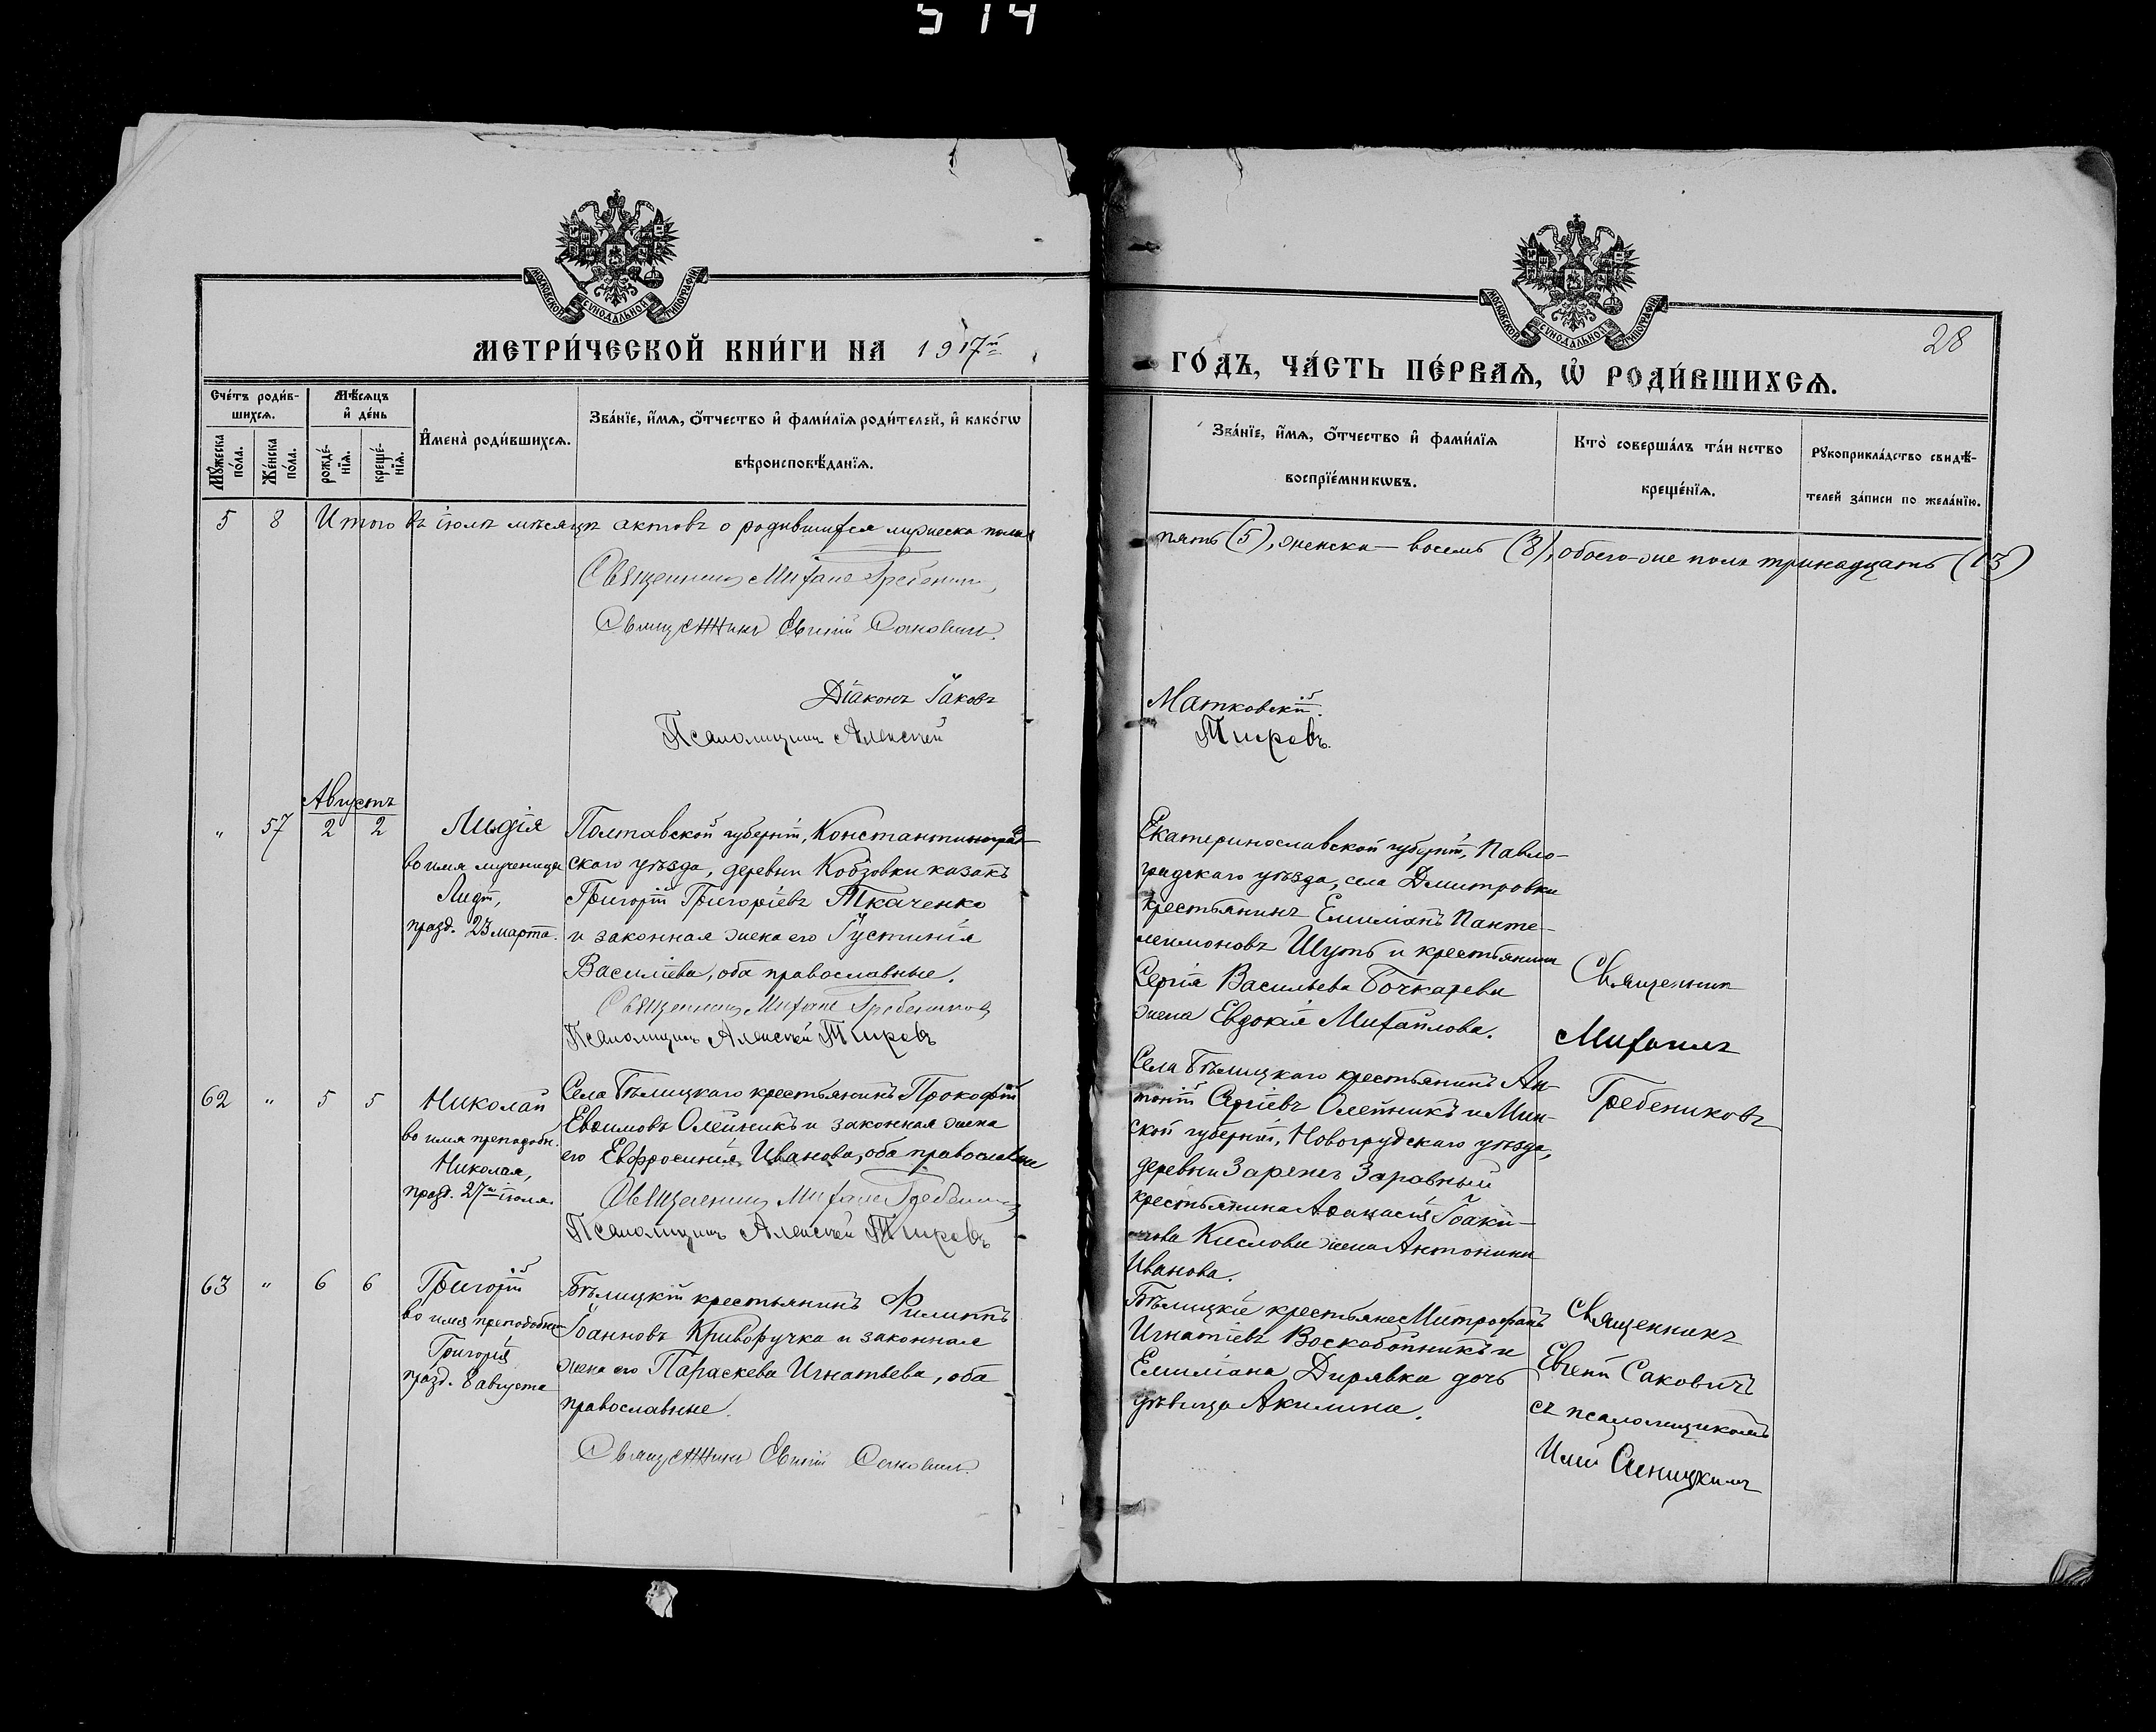 514
МОСКОВСКОЙ СУНОДАЛЬНОЙ ТИПОГРАФІИ
МОСКОВСКОЙ СУНОДАЛЬНОЙ ТИПОГРАФІИ
28
МЕТРИ́ЧЕСКОЙ КНИ́ГИ НА 1917й
ГО́ДЪ, ЧА́СТЬ ПЕ́РВАѦ, Ѡ҆ РОДИ́ВШИХСѦ.
Сче́тъ роди́в-
шихсѧ.
Мꙋ́жеска по́ла.
Же́нска по́ла.
Мѣ́сѧцъ
и҆ де́нь
рожде́-
нїѧ.
креще́-
нїѧ.
И҆мена̀ роди́вшихсѧ.
Зва́нїе, и҆́мѧ, ѻ҆́тчество и҆ фами́лїѧ роди́телей, и҆ како́гѡ
вѣроисповѣ́данїѧ.
Зва́нїе, и҆́мѧ, ѻ҆́тчество и҆ фами́лїѧ
воспрїе́мникѡвъ.
Кто̀ соверша́лъ та́инство
креще́нїѧ.
Рꙋкоприкла́дство свидѣ́-
телей за́писи по жела́нїю.
5 8 Итого въ іюлѣ мѣсяцѣ актовъ о родившихся мужеска пола
пять (5), женска — восемь (8), обоего-же пола тринадцать (13)
Священникъ Михаилъ Гребениковъ
Священникъ Евгеній Саковичъ.
Діаконъ Іаковъ
Матковскій.
Псаломщикъ Алексѣй
Тировъ.
Августъ
" 57 2 2
Лидія
во имя мученицы
Лидіи,
празд. 23 марта.
Полтавской губерніи, Константиноград-
скаго уѣзда, деревни Кобзовки казакъ
Григорій Григоріевъ Ткаченко
и законная жена его Іустинія
Василіева, оба православные.
Священникъ Михаилъ Гребениковъ
Псаломщикъ Алексѣй Тировъ
Екатеринославской губерніи, Павло-
градскаго уѣзда, села Дмитровки
крестьянинъ Емиліанъ Панте-
леимоновъ Шуть и крестьянина
Сергія Васильева Бочкарева
жена Евдокія Михайлова.
Священникъ
Михаилъ
Гребениковъ
62 " 5 5
Николай
во имя преподобн.
Николая,
празд. 27го іюля.
Села Бѣлицкаго крестьянинъ Прокофій
Евѳимовъ Олейникъ и законная жена
его Евфросинія Иванова, оба православные
Священникъ Михаилъ Гребениковъ
Псаломщикъ Алексѣй Тировъ
Села Бѣлицкаго крестьянинъ Ан-
тоній Сергіевъ Олейникъ и Мин-
ской губерніи, Новогрудскаго уѣзда,
деревни
крестьянина Аѳанасія Іоаки-
мова Кислова жена Антонина
Иванова.
63 " 6 6
Григорій
во имя преподобн.
Григорія
празд. 8 августа
Бѣлицкій крестьянинъ Филиппъ
Іоанновъ Криворучка и законная
жена его Параскева Игнатьева, оба
православные.
Священникъ Евгеній Саковичъ.
Бѣлицкіе крестьяне Митрофанъ
Игнатіевъ Воскобойникъ и
Емиліана Дирявка дочь
дѣвица Акилина.
Священникъ
Евгеній Саковичъ
съ псаломщикомъ